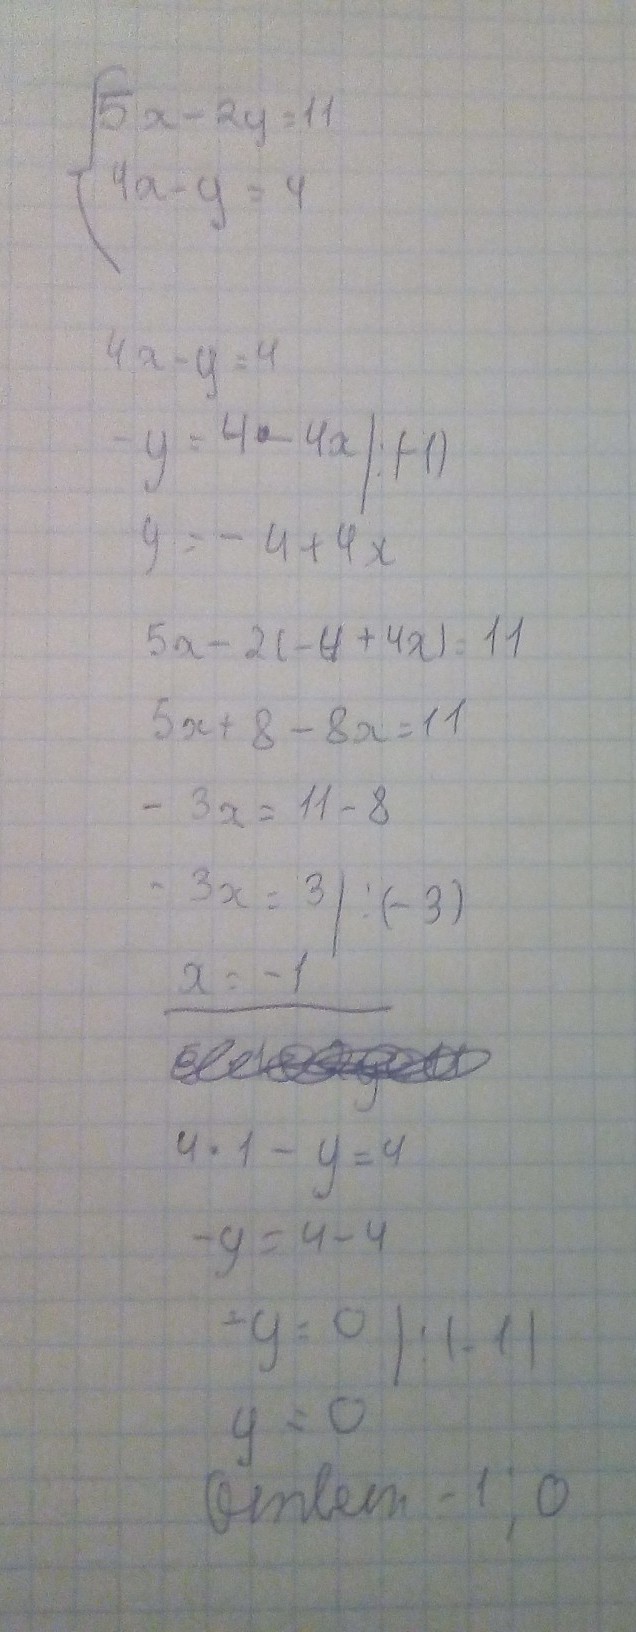 5x-2y=11
4x-y=4
4x-y=4
-y=4-4x|:(-1)
y=-4+4x
5x-2(-4+4x)=11
5x+8-8x=11
-3x=11-8
-3x=3|:(-3)
x=-1
4·1-y=4
-y=4-4
-y=0|:(-1)
y=0
Ответ -1;0